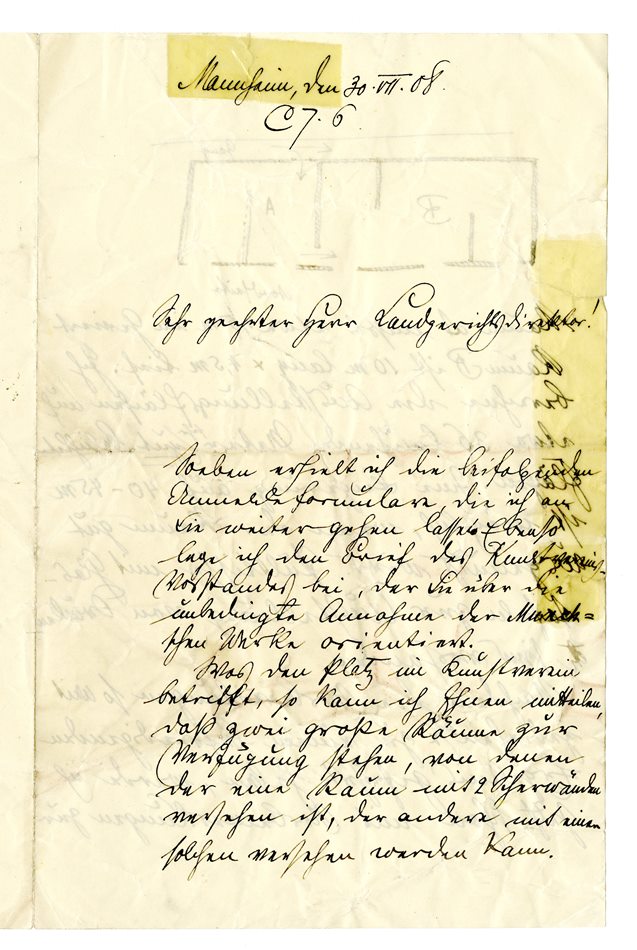 Mannheim, den 30.VII.08.
C 7. 6.
Sehr geehrter Herr Landgerichtsdirektor!
Soeben erhielt ich die beifolgenden
Anmeldeformulare, die ich an
Sie weiter gehen lasse. Ebenso
lege ich den Brief des Kunstvereins-
Vorstandes bei, der Sie über die
unbedingte Annahme der Munch=
schen Werke orientiert.
Was den Platz im Kunstverein
betrifft, so kann ich Ihnen mitteilen,
daß zwei große Räume zur
Verfügung stehen, von denen
der eine Raum mit 2 Scherwänden
versehen ist, der andere mit einer
solchen versehen werden kann.